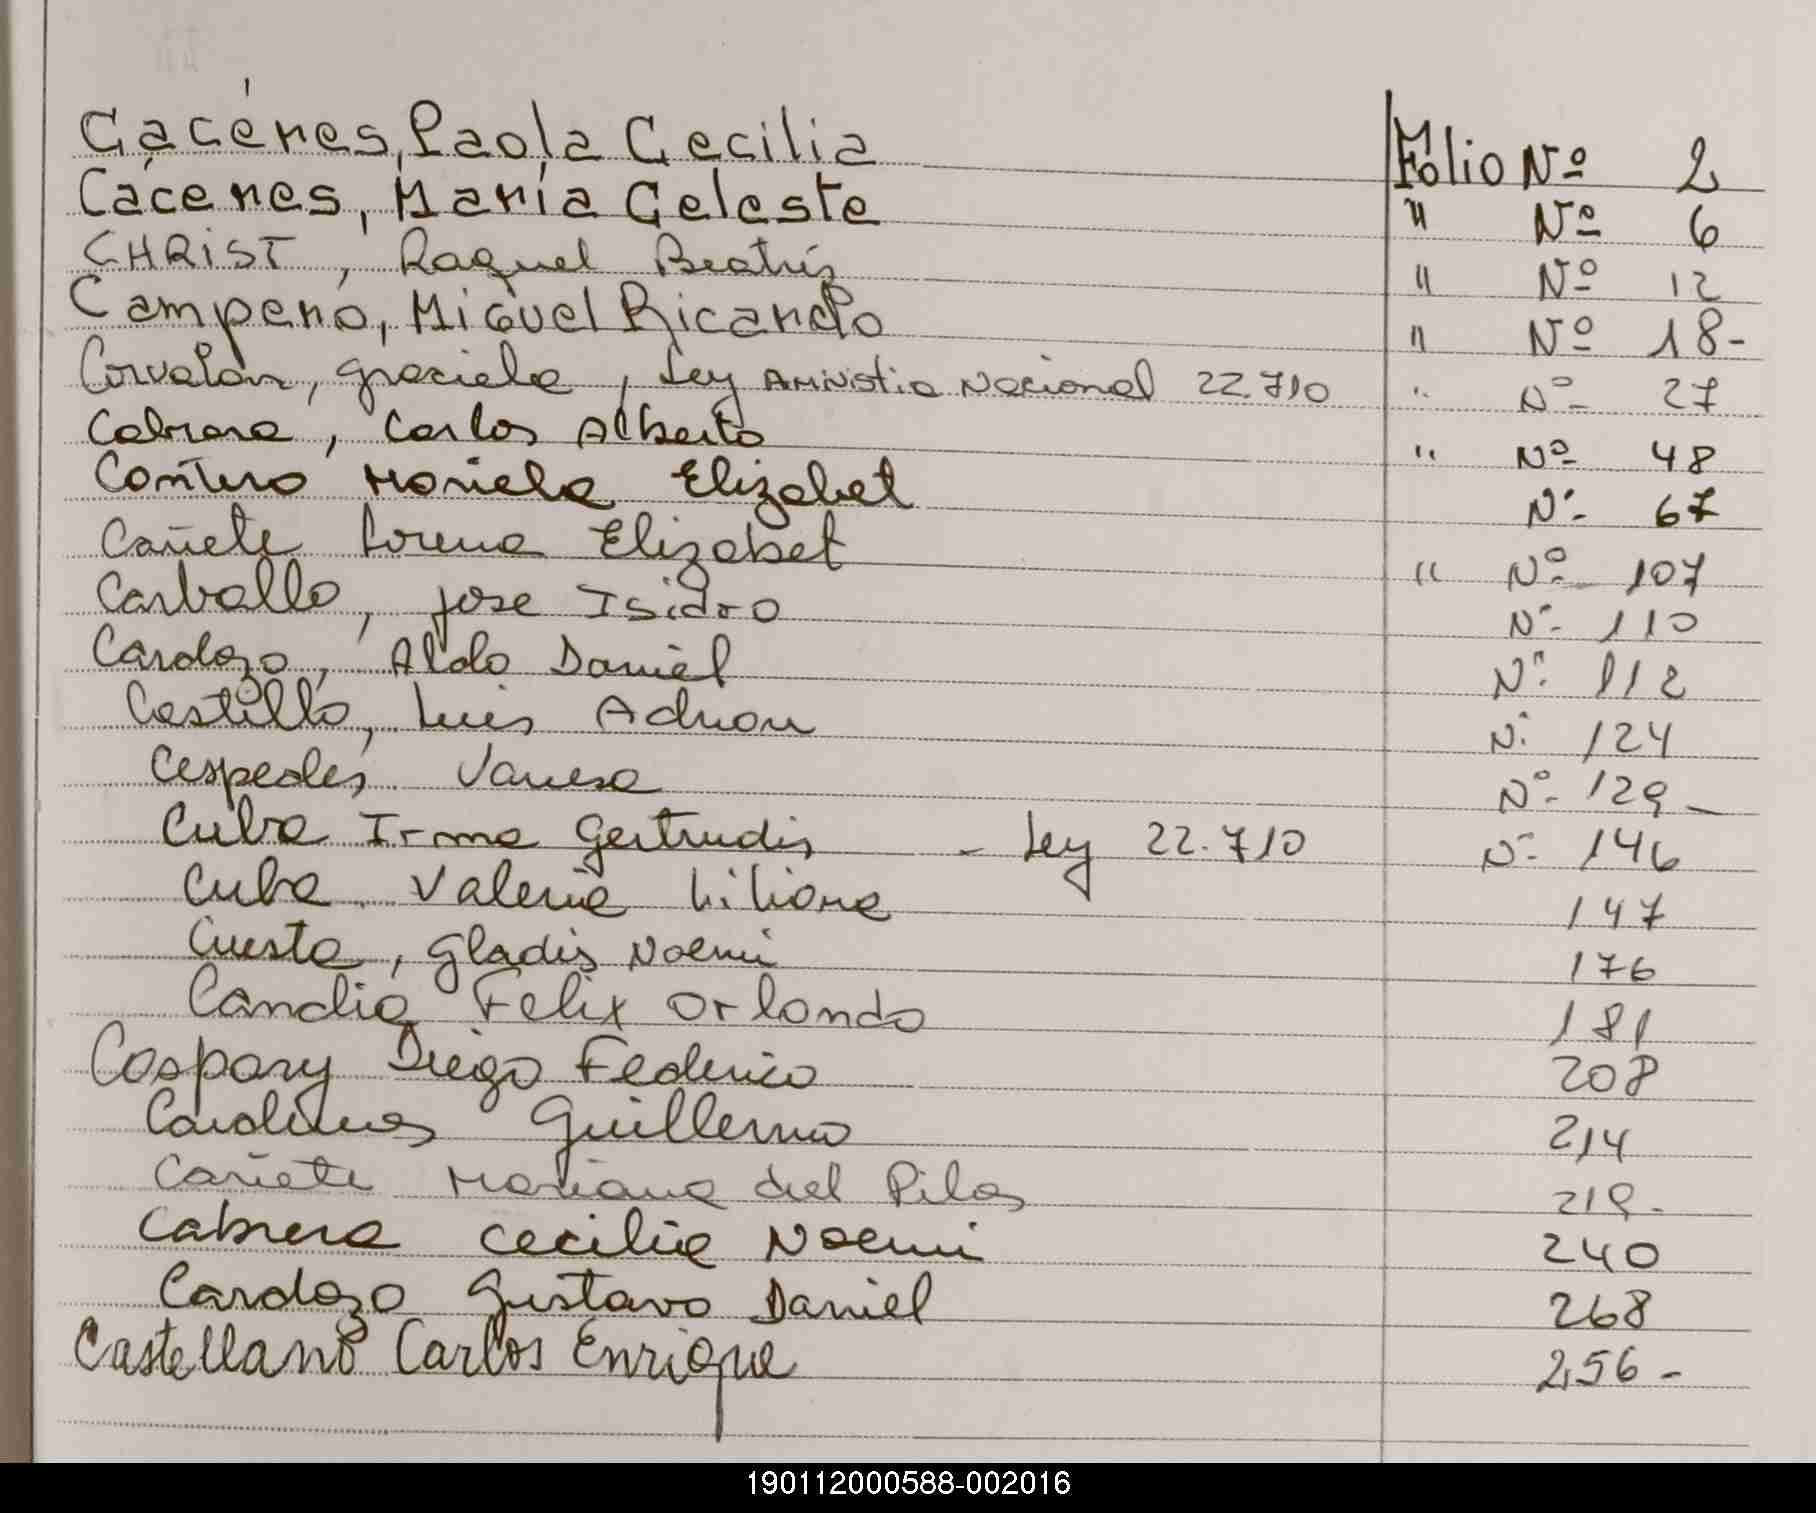 Cácéres, Paola Cecilia Fólio Nº 2
Cáceres, María Celeste " Nº 6
CHRIST, Raquel Beatris " Nº 12
Campero, Miguel Ricardo " Nº 18-
Corvalan, Graciela, Ley Amnistia Nacional 22.710 " Nº 27
Cabrera, Carlos Alberto " Nº 48
Mariela Elizabet Nº 67
Cañete Lorena Elizabet " Nº 107
Carballo, Jose Isidro Nº 110
Cardozo, Aldo Daniel Nº 112
Castillo, Luis Adrian Nº 124
Cespedes Vanesa Nº 129-
Cuba Irma Gertrudis - Ley 22.710 Nº 146
Cuba Valeria Liliana 147
Cuesta, Gladis Noemi 176
Candia Felix Orlando 181
Caspary Diego Federico 208
Guillermo 214
Cañete Mariana del Pilar 219-
Cabrera Cecilia Noemi 240
Cardozo Gustavo Daniel 268
Castellano Carlos Enrique 256-
190112000588-002016